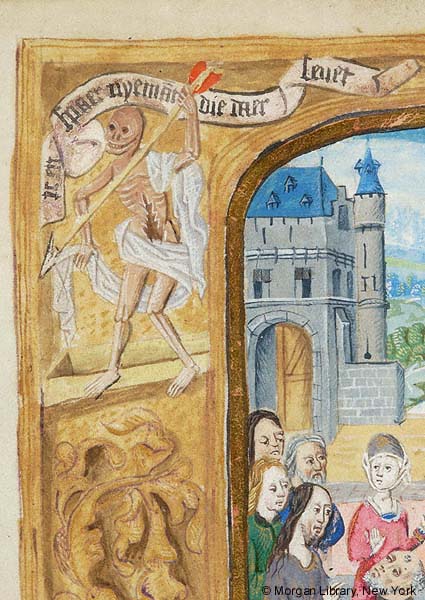 ic en spaer nyemant die mer leuet
© Morgan Library, New York